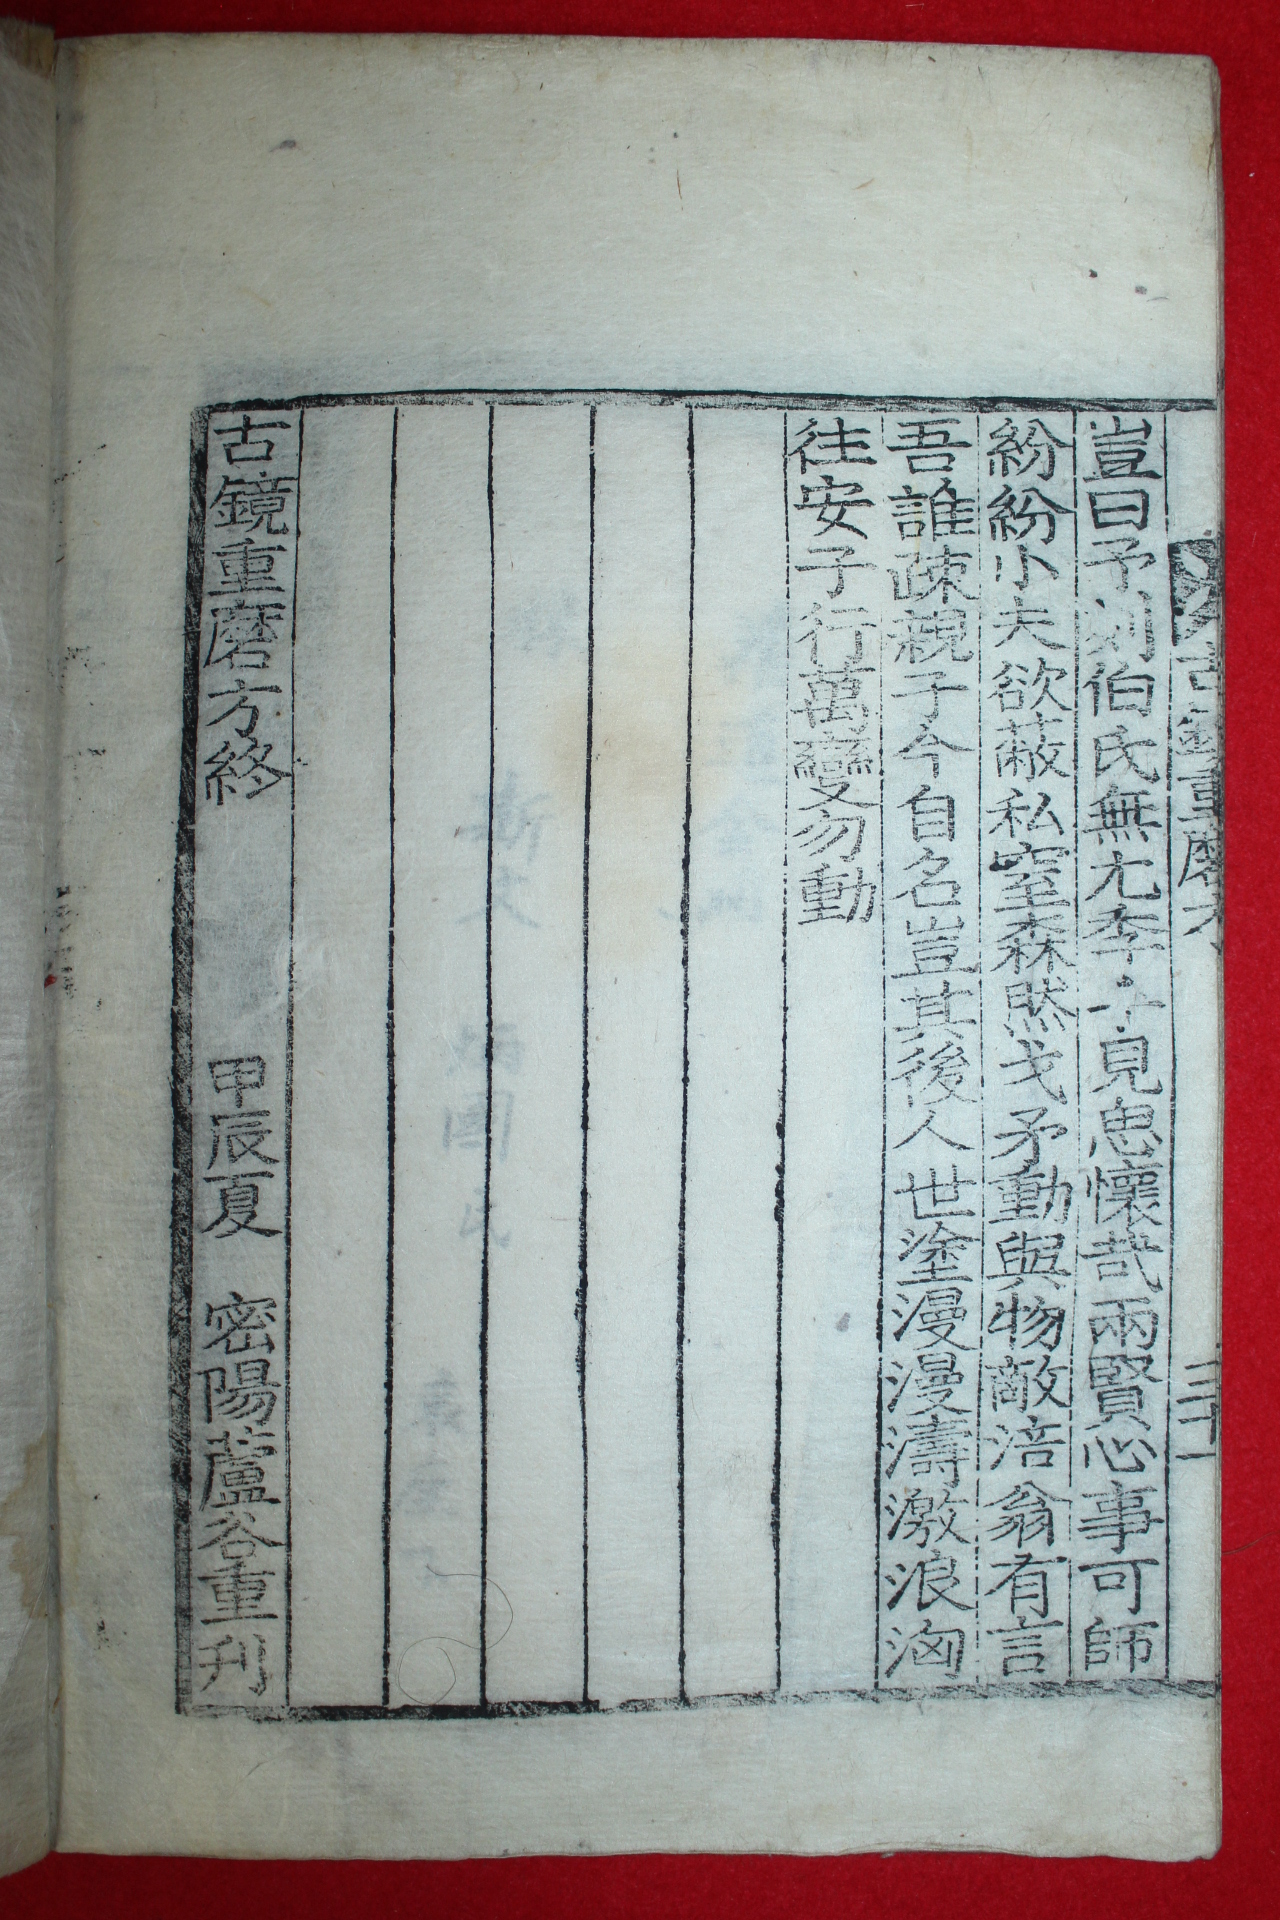 古鏡重磨方
三十一
豈曰予刻伯氏無尤季子見思懷哉兩賢心事可師
紛紛小夫欲蔽私窒森然戈矛動與物敵涪翁有言
吾誰疎親子今自名豈其後人世塗漫漫濤激浪洶
往安子行萬變勿動
古鏡重磨方終
甲辰夏 密陽蘆谷重刊